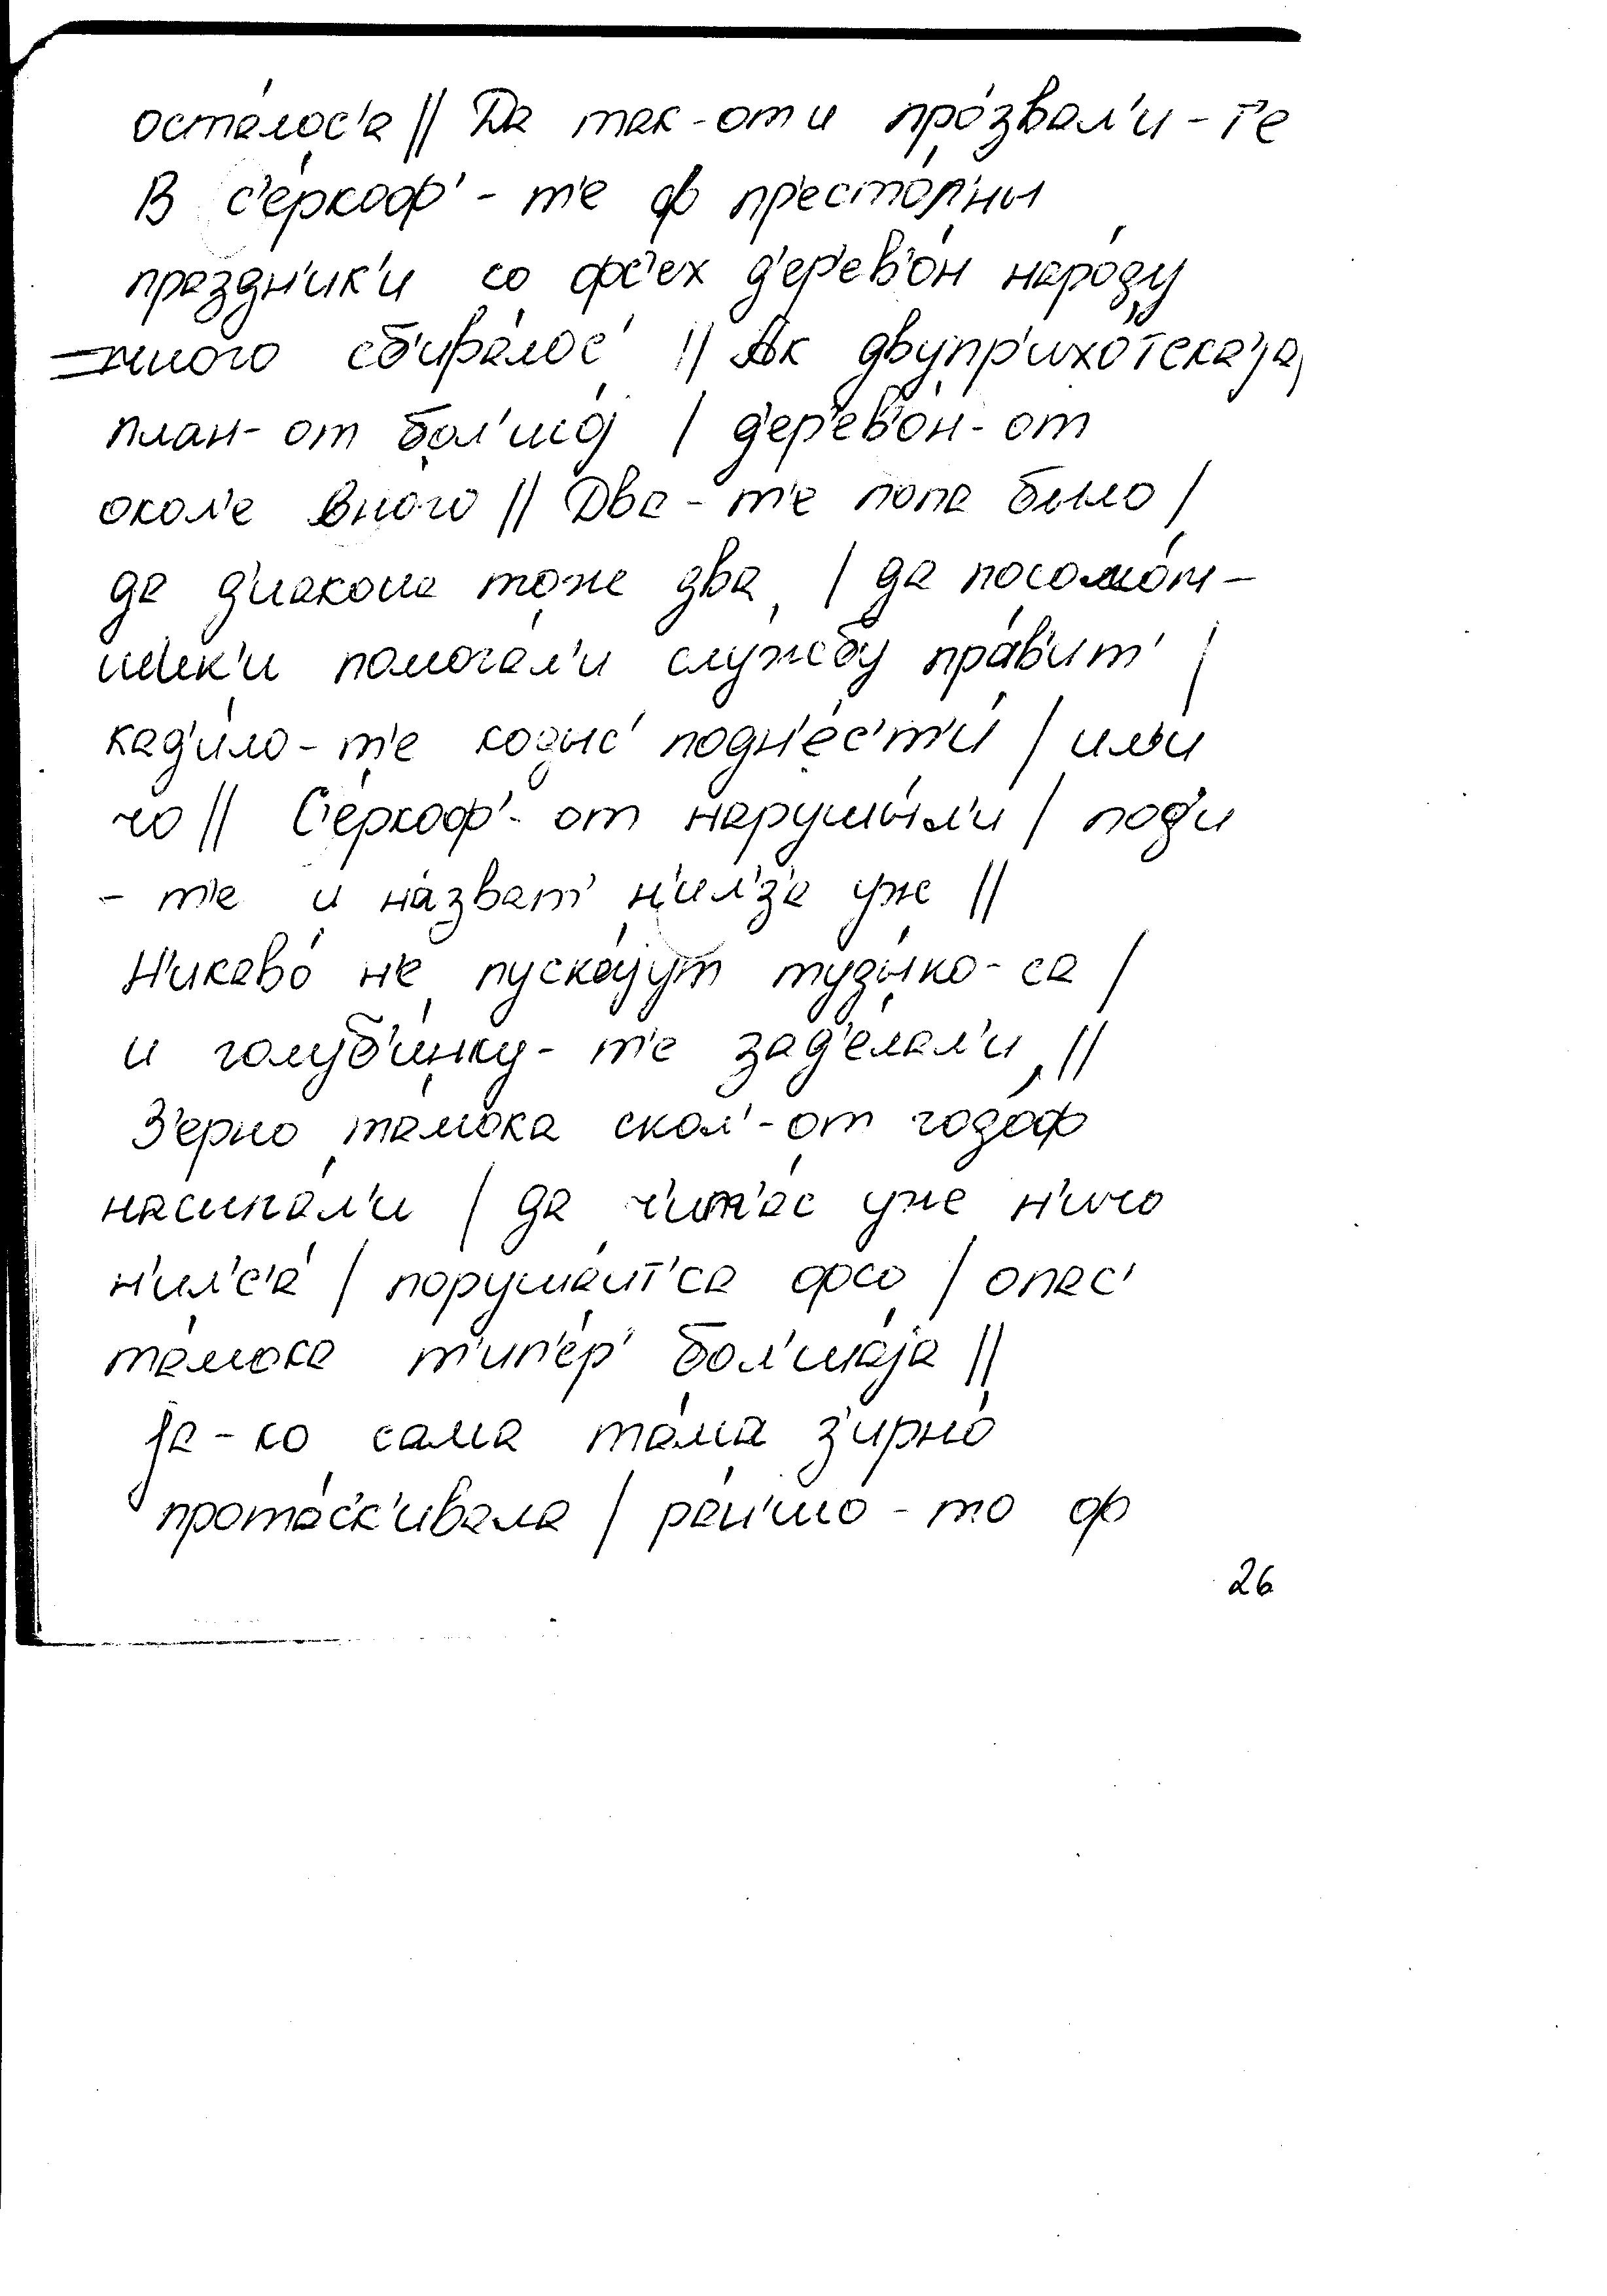 оста́лос'а || Да так-от и про́звал'и - т'е
В с'е́ркоф' - т'е ф пр'есто́л'ны
празд'н'ик'и со фс'ех д'ер'ев'о́н наро́ду
много сб'ира́лос' || Ак двупр'ихо́тскаjа,
план- от бол'шо́j / д'ер'ев'о́н- от
окол'е вного || Два - т'е попа было /
да д'иакона тоже два / да посо
ик'и помогал'и слу́жбу пра́в'ит' /
кад'и́ло - т'е кодыс' подн'е́с'т'и / ил'и
чо || С'е́ркоф'- от нарушы́л'и / под'и
- т'е и на́зват' н'ил'з'а уж ||
Н'икаво́ н'е пуска́jут туды́ко - са /
и голуб'и́нку - т'е зад'е́лал'и ||
З'ерно та́мока скол'-от годо́ф
насыпа́л'и / да уже н'ичо
н'ил'с'а́ / поруша́ит'са фсо / опас'
та́мока т'ип'е́р' бол'ша́jа ||
jа - ко сама та́ма з'ирно́
прота́с'к'ивала / ра́н'шо - то ф
26